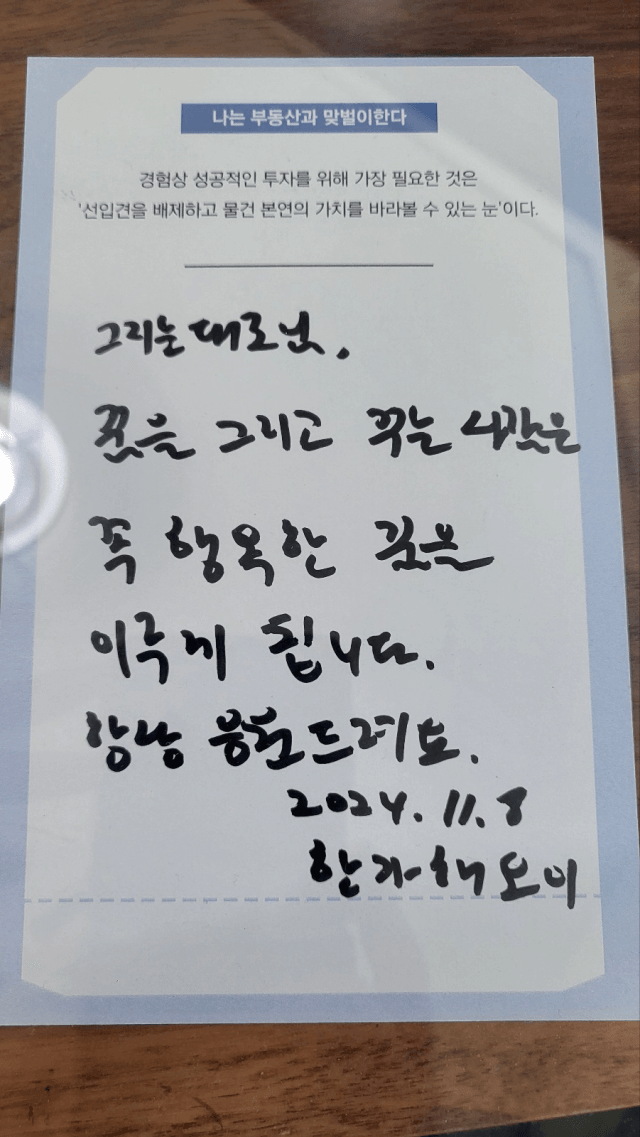 나는 부동산과 맞벌이한다
경험상 성공적인 투자를 위해 가장 필요한 것은
'선입견을 배제하고 물건 본연의 가치를 바라볼 수 있는 눈'이다.
그리는대로님.
꿈을 그리고 꾸는 사람은
꼭 행복한 꿈을
이루게 됩니다.
항상 응원드려요.
2024. 11. 8